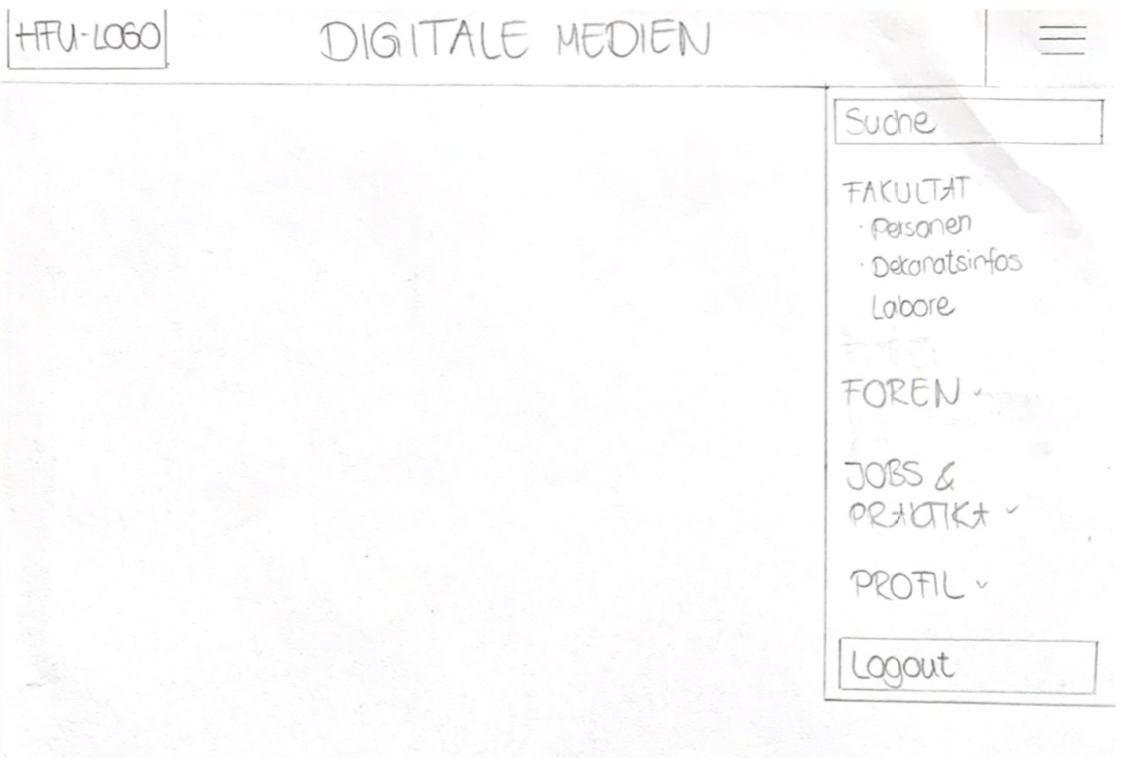 HFU-LOGO
DIGITALE MEDIEN
Suche
FAKULTAT
· Personen
· Dekanatsinfos
Labore
FOREN ˅
JOBS &
PRAKTIKA ˅
PROFIL ˅
Logout